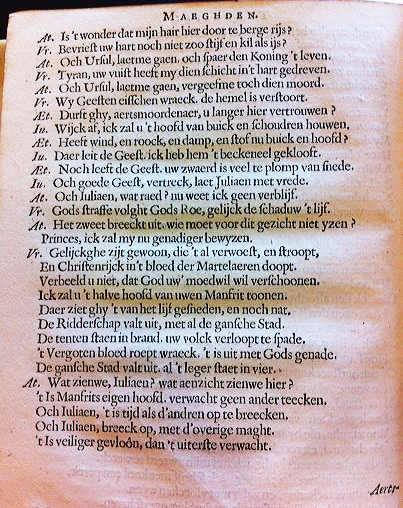 MAEGHDEN.
At. Is 't wonder dat mijn hair hier door te berge rijs?
Vr. Bevriest uw hart noch niet zoo stijf en kil als ijs?
At. Och Ursul, laetme gaen. och spaer den Koning 't leven.
Vr. Tyran, uw vuist heeft my dien schicht in 't hart gedreven.
At. Och Ursul, laetme gaen, vergeefme toch dien moord.
Vr. Wy Geesten eisschen wraeck. de hemel is verstoort.
Æt. Durft ghy, aertsmoordenaer, u langer hier vertrouwen?
Iu. Wijck af, ick zal u 't hoofd van buick en schoudren houwen.
Æt. Heeft wind, en roock, en damp, en stof nu buick en hoofd?
Iu. Daer leit de Geest. ick heb hem 't beckeneel geklooft.
Æt. Noch leeft de Geest. uw zwaerd is veel te plomp van snede.
Iu. Och goede Geest, vertreck, laet Juliaen met vrede.
At. Och Iuliaen, wat raed? nu weet ick geen verblijf.
Vr. Gods straffe volght Gods Roe, gelijck de schaduw 't lijf.
At. Het zweet breeckt uit. wie moet voor dit gezicht niet yzen?
Princes, ick zal my nu genadiger bewyzen.
Vr. Gelijckghe zijt gewoon, die 't al verwoest, en stroopt,
En Christenrijck in 't bloed der Martelaeren doopt.
Verbeeld u niet, dat God uw' moedwil wil verschoonen.
Ick zal u 't halve hoofd van uwen Manfrit toonen.
Daer ziet ghy 't van het lijf gesneden, en noch nat.
De Ridderschap valt uit, met al de gansche Stad.
De tenten staen in brand. uw volck verloopt te spade.
't Vergoten bloed roept wraeck. 't is uit met Gods genade.
De gansche Stad valt uit. al 't leger staet in vier.
At. Wat zienwe, Iuliaen? wat aenzicht zienwe hier?
't Is Manfrits eigen hoofd. verwacht geen ander teecken.
Och Iuliaen, 't is tijd als d'andren op te breecken.
Och Iuliaen, breeck op, met d'overige maght.
't Is veiliger gevloôn, dan 't uiterste verwacht.
Aerts-